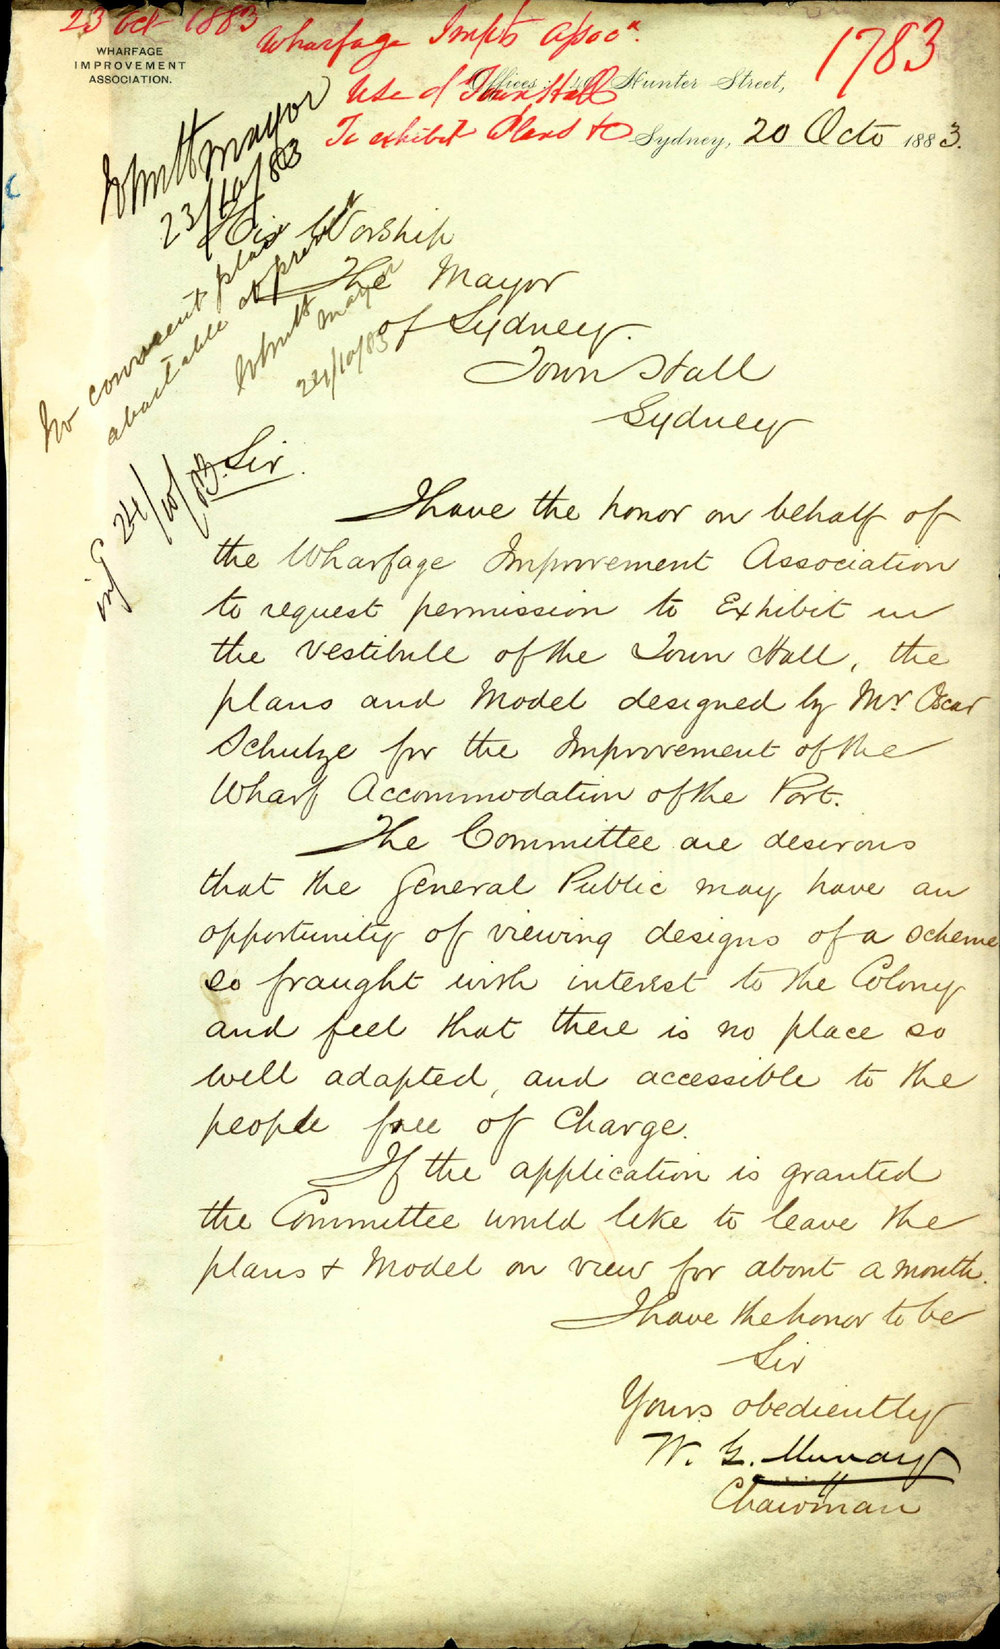 23 Oct 1883
WHARFAGE
IMPROVEMENT
ASSOCIATION.
Wharfage Impts Assocn.
Use of Town Hall
To exhibit Plans &c
1783
Offices: Hunter Street,
Sydney, 20 Octo 1883.
Mayor
23/10/83
No convenient place
available at present
Mayor
24/10/83
inf 24/10/83
His Worship
The Mayor
of Sydney.
Town Hall
Sydney
Sir.
I have the honor on behalf of
the Wharfage Improvement Association
to request permission to Exhibit in
the Vestibule of the Town Hall, the
plans and Model designed by Mr. Oscar
Schulze for the Improvement of the
Wharf Accommodation of the Port.
The Committee are desirous
that the General Public may have an
opportunity of viewing designs of a scheme
so fraught with interest to the Colony
and feel that there is no place so
well adapted, and accessible to the
people free of Charge.
If the application is granted
the Committee would like to leave the
plans & Model on view for about a month.
I have the honor to be
Sir
Yours obediently
W. G. Murray
Chairman